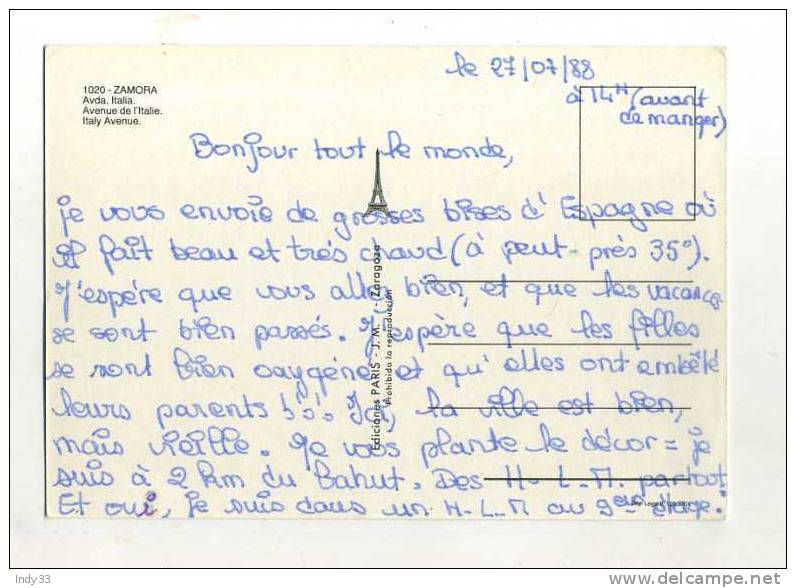 le 27/07/88
1020 - ZAMORA
Avda. Italia.
Avenue de l'Italie.
Italy Avenue.
à 14H (avant
de manger)
Bonjour tout le monde,
je vous envoie de grosses bises d'Espagne où
il fait beau et très chaud (à peut-près 35°).
J'espére que vous allez bien, et que les vacances
se sont bien passés. J'espère que les filles
se sont bien oxygéné et qu'elles ont embêté
leurs parents !!! Ici, la ville est bien,
mais vieille. Je vous plante le décor = je
suis à 2 km du bahut. Des H-L-M. partout
Et oui, je suis dans un H-L-M au 9eme étage!
Ediciones PARIS - J. M. - Zaragoza
Prohibida la reproducción
Indy33
http://www.delcampe.net